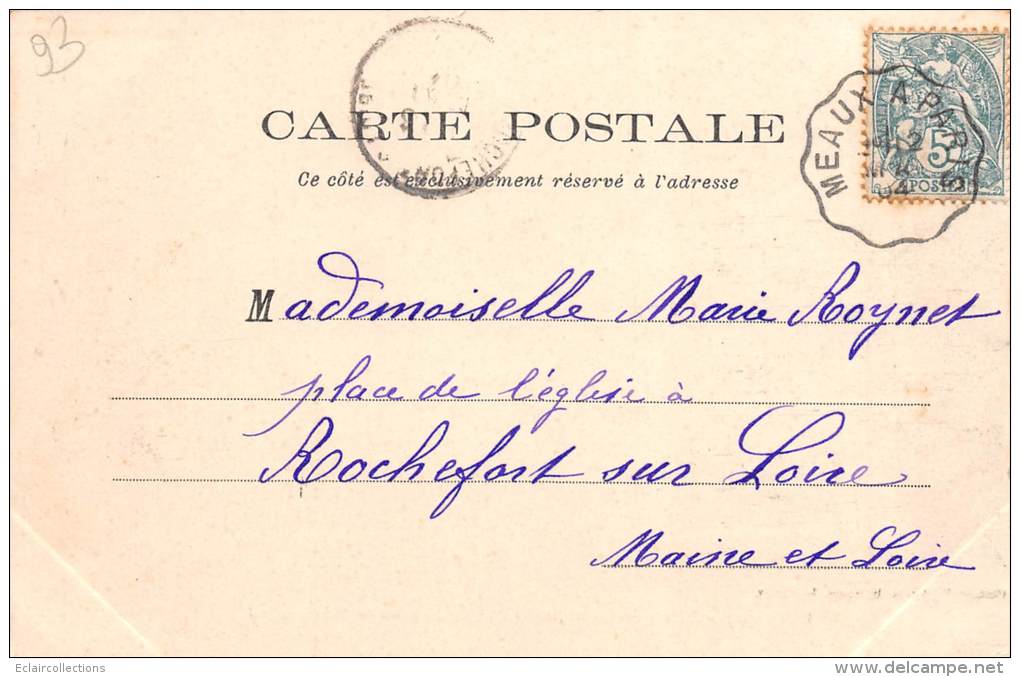 93
CARTE POSTALE
Ce côté est exclusivement réservé à l'adresse
MEAUX A PARIS
04
5
POSTES
Mademoiselle Marie Roynet
place de l'église à
Rochefort sur Loire
Maine et Loire
Eclaircollections
delcampe.net